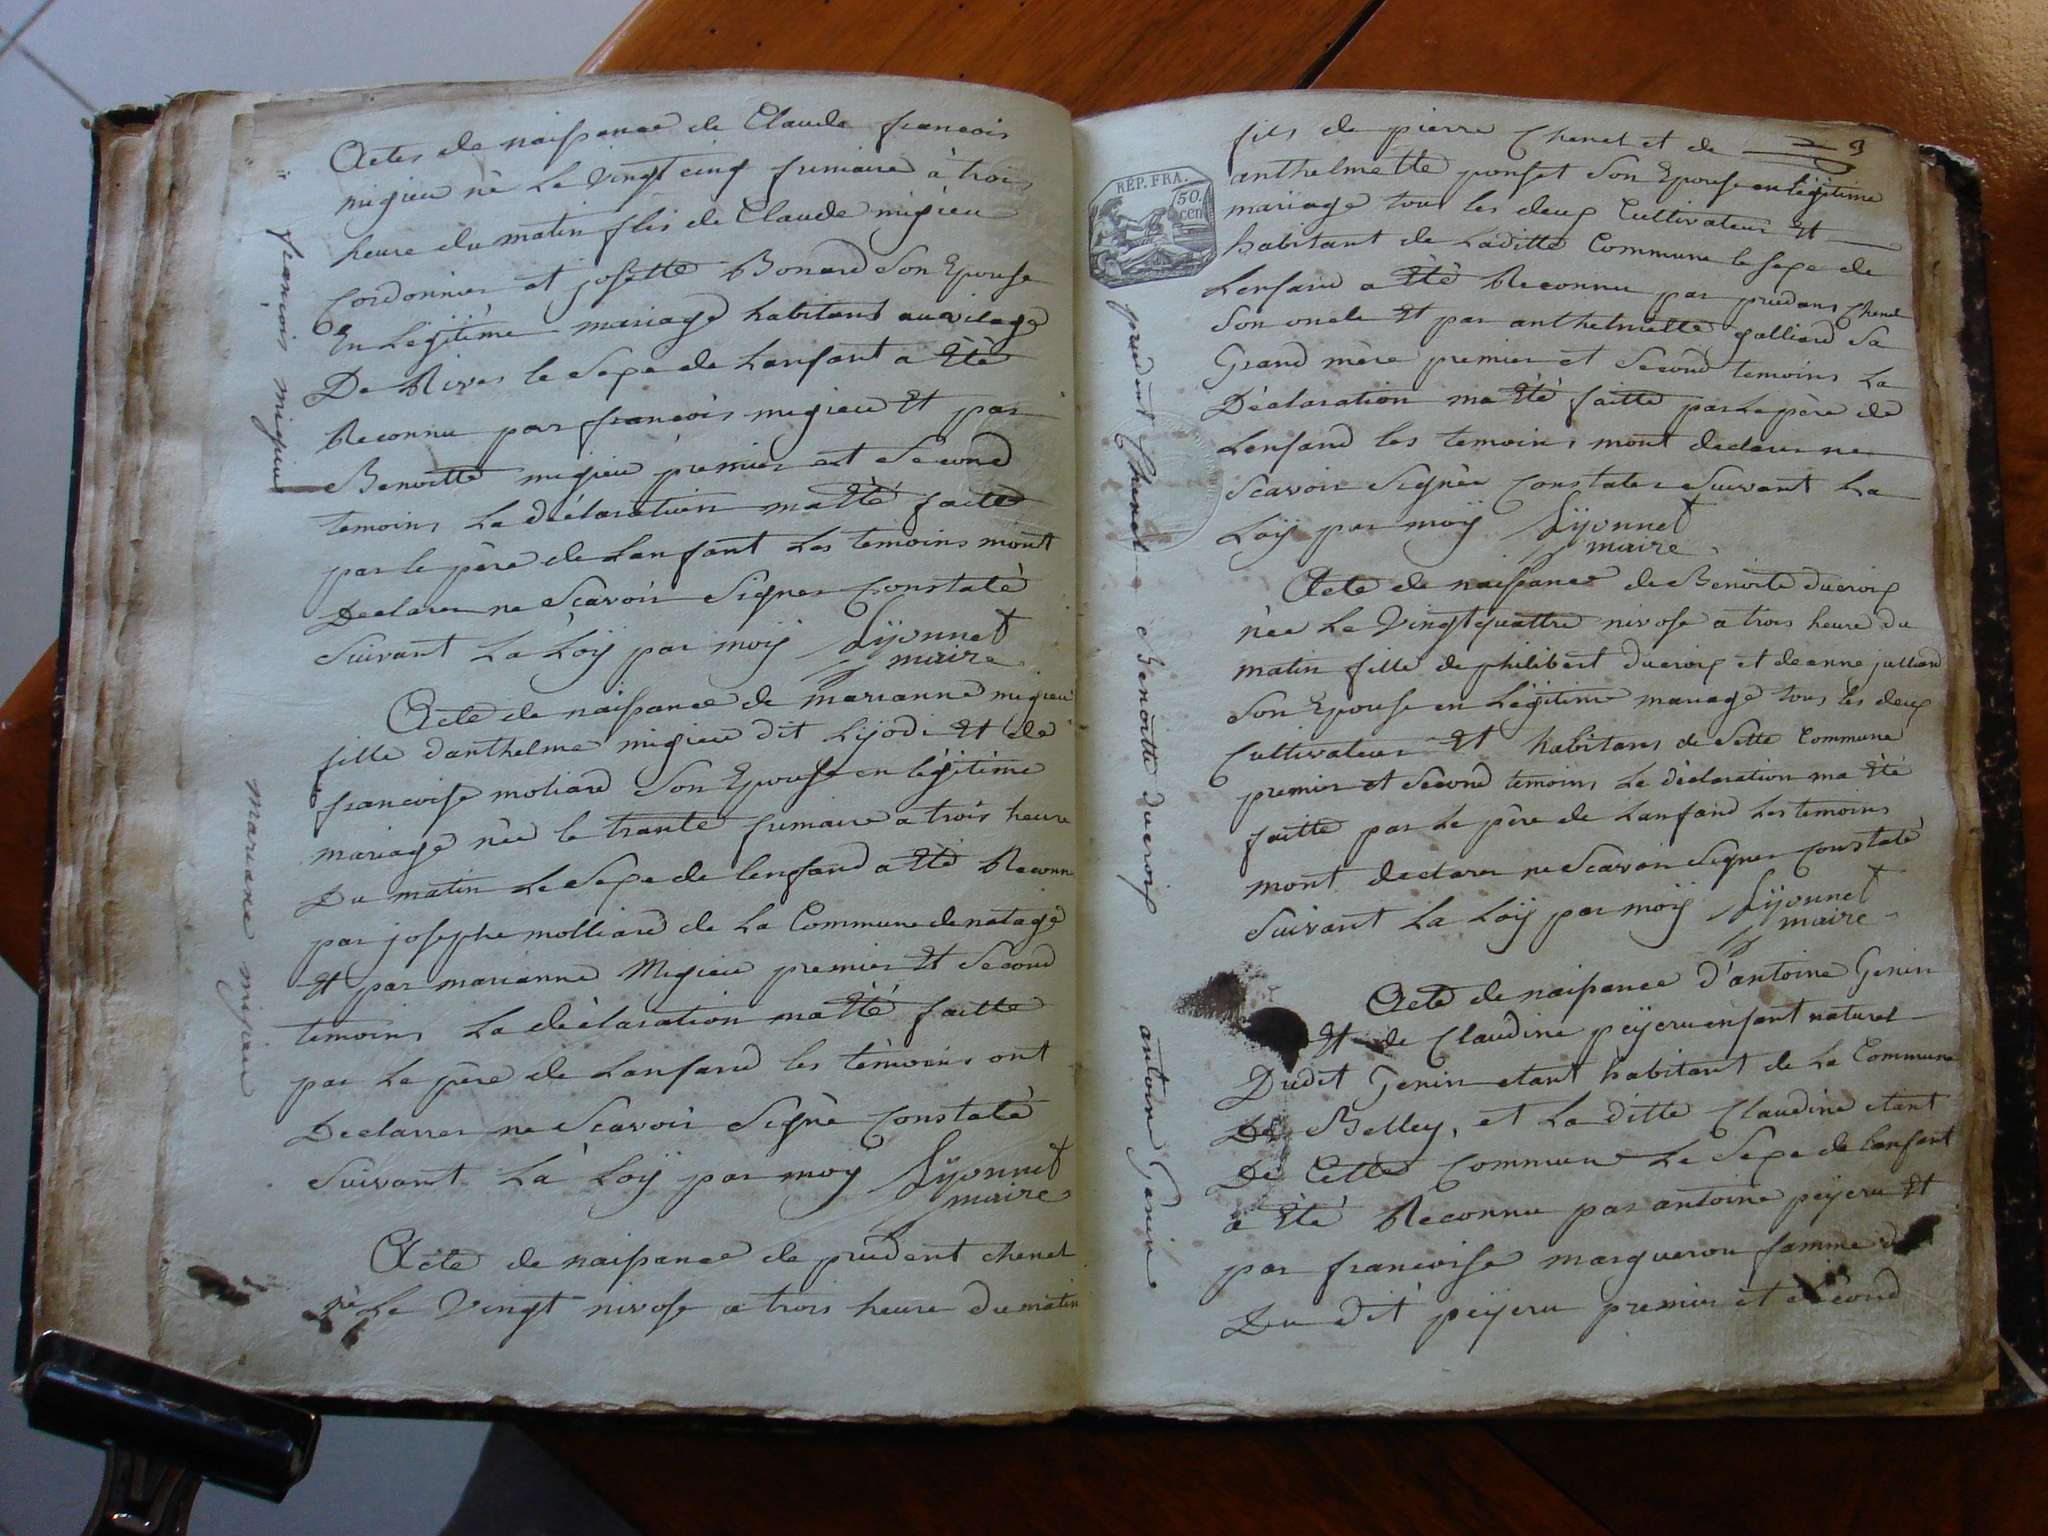 Actes de naissance de Claude francois
migieu nè Le Vingt cinq frimaire à trois
heure du matin flis de Claude migieu
Cordonnier et josette Bonard Son Epouse
En Legitime mariage habitans au vilage
De Rives le Sexe de Lanfant a Etè
Reconnu par francois migieu Et par
Benoitte migieu premier et Second
temoins La dèclaration ma Eté faitte
par le père de Lanfant Les temoins mont
Declarer ne Scavoir Signer Constatè
Suivant La Loÿ par moÿ Lÿonnet
maire
francois migieu
Acte de naissance de marianne migieu
fille danthelme migieu dit Lijodi Et de
francoise moliard Son Epouse en legitime
mariage nèe le trante frimaire a trois heure
Du matin Le Sexe de lenfand a Eté Reconnu
par josephe molliard de La Commune de natage
Et par marianne Migieu premier Et Second
temoins La dèclaration ma Eté faitte
par Le père de Lanfand les tèmoins ont
Declarer ne Scavoir Signè Constatè
Suivant La Loÿ par moy Lÿonnet
maire
mariane migieu
Acte de naissance de prudent chenet
nè Le Vingt nivose a trois heure Du matin
fils de pierre Chenet et de
anthelmette ponset Son Epouse en legitime
mariage tous les deux Cultivateur Et
habitant de Laditte Commune le sexe de
Lenfand a Eté Reconnu par prudans Chenet
Son oncle Et par anthelmette galliard Sa
Grand mère premier et Second temoins La
Dèclaration ma Eté faitte par Le père de
Lenfand les temoins mont declarer ne
Scavoir Signèr Constater Suivant La
Loÿ par moÿ Lÿonnet
maire
RÉP. FRA.
50.
cen
prudent Chenet
Acte de naissance de Benoite ducroix
nèe Le Vingt quattre nivose a trois heure du
matin fille de philibert ducroix et de anne julliard
Son Epouse en Lègitime mariage tous les deux
Cultivateur Et habitans de Sette Commune
premier et Second temoins La dèclaration ma Etè
faitte par Le père de Lanfand Les temoins
mont declarer ne Scavoir Signer Constatè
Suivant La Loÿ par moÿ Lÿonnet
maire
Benoitte ducroix
Acte de naissance d'antoine Genin
Et de Claudine peÿcru enfant naturel
Dudit Genin etant habitant de La Commune
De Belley, et La ditte Claudine etant
De Cette Commune Le Sexe de Lanfant
a Eté Reconnu par antoine peÿcru Et
par francoise margueron famme
Du dit peÿcru premier et second
antoine Genin